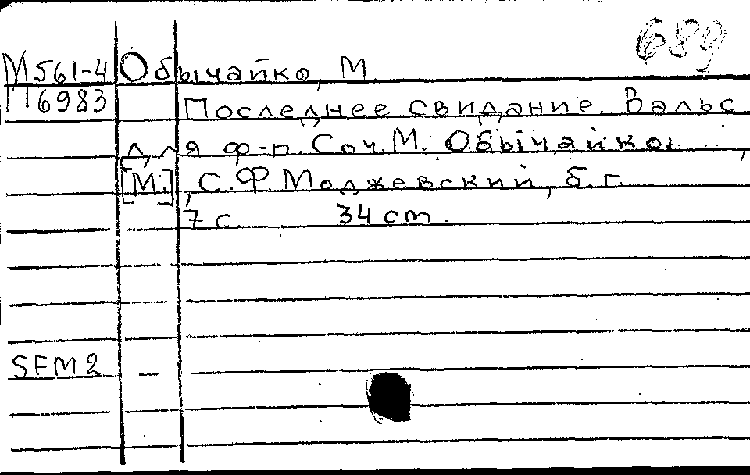 689
М561-4 Обычайко, М.
П6983 Последнее свидание. Вальс
для ф-п. Соч. М. Обычайко.
[М.], С.Ф Маджевский, б.г.
7 с. 34 cm.
SFM2 —